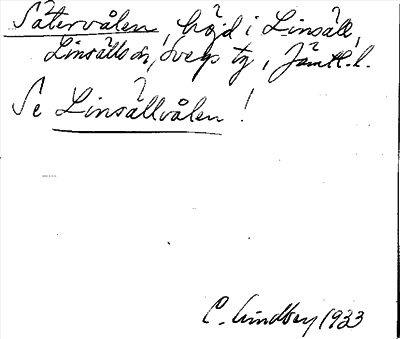 Sätervålen, höjd i Linsäll,
Linsälls sn, Svegs tg, Jämtl. l.
Se Linsällvålen!
C. Lindberg 1933